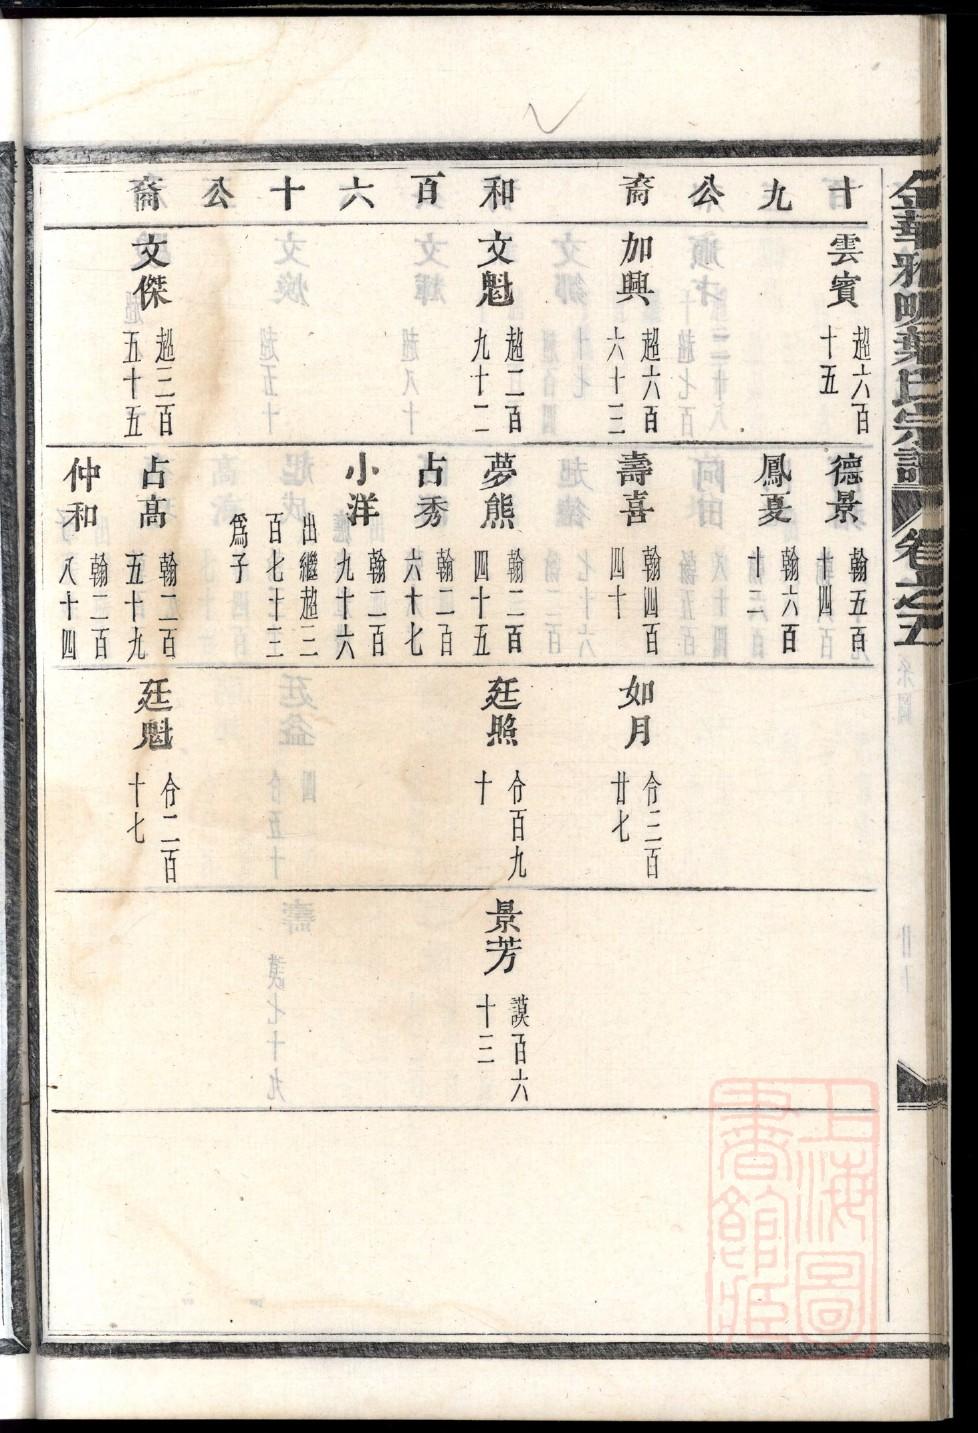 十九公裔
和百六十公裔
雲賓 超六百十五
加興 超六百六十三
文魁 超二百九十二
文傑 超三百五十五
德景 翰五百十四
鳳夏 翰六百十六
壽喜 翰四百四十
夢熊 翰二百四十五
占秀 翰二百六十七
小洋 翰二百九十六
出繼超三百七十三爲子
占高 翰二百五十九
仲和 翰三百八十四
如月 令三百廿七
廷照 令百九十
廷魁 令二百十七
景芳 謨百六十三
卷之五
上海圖書館藏